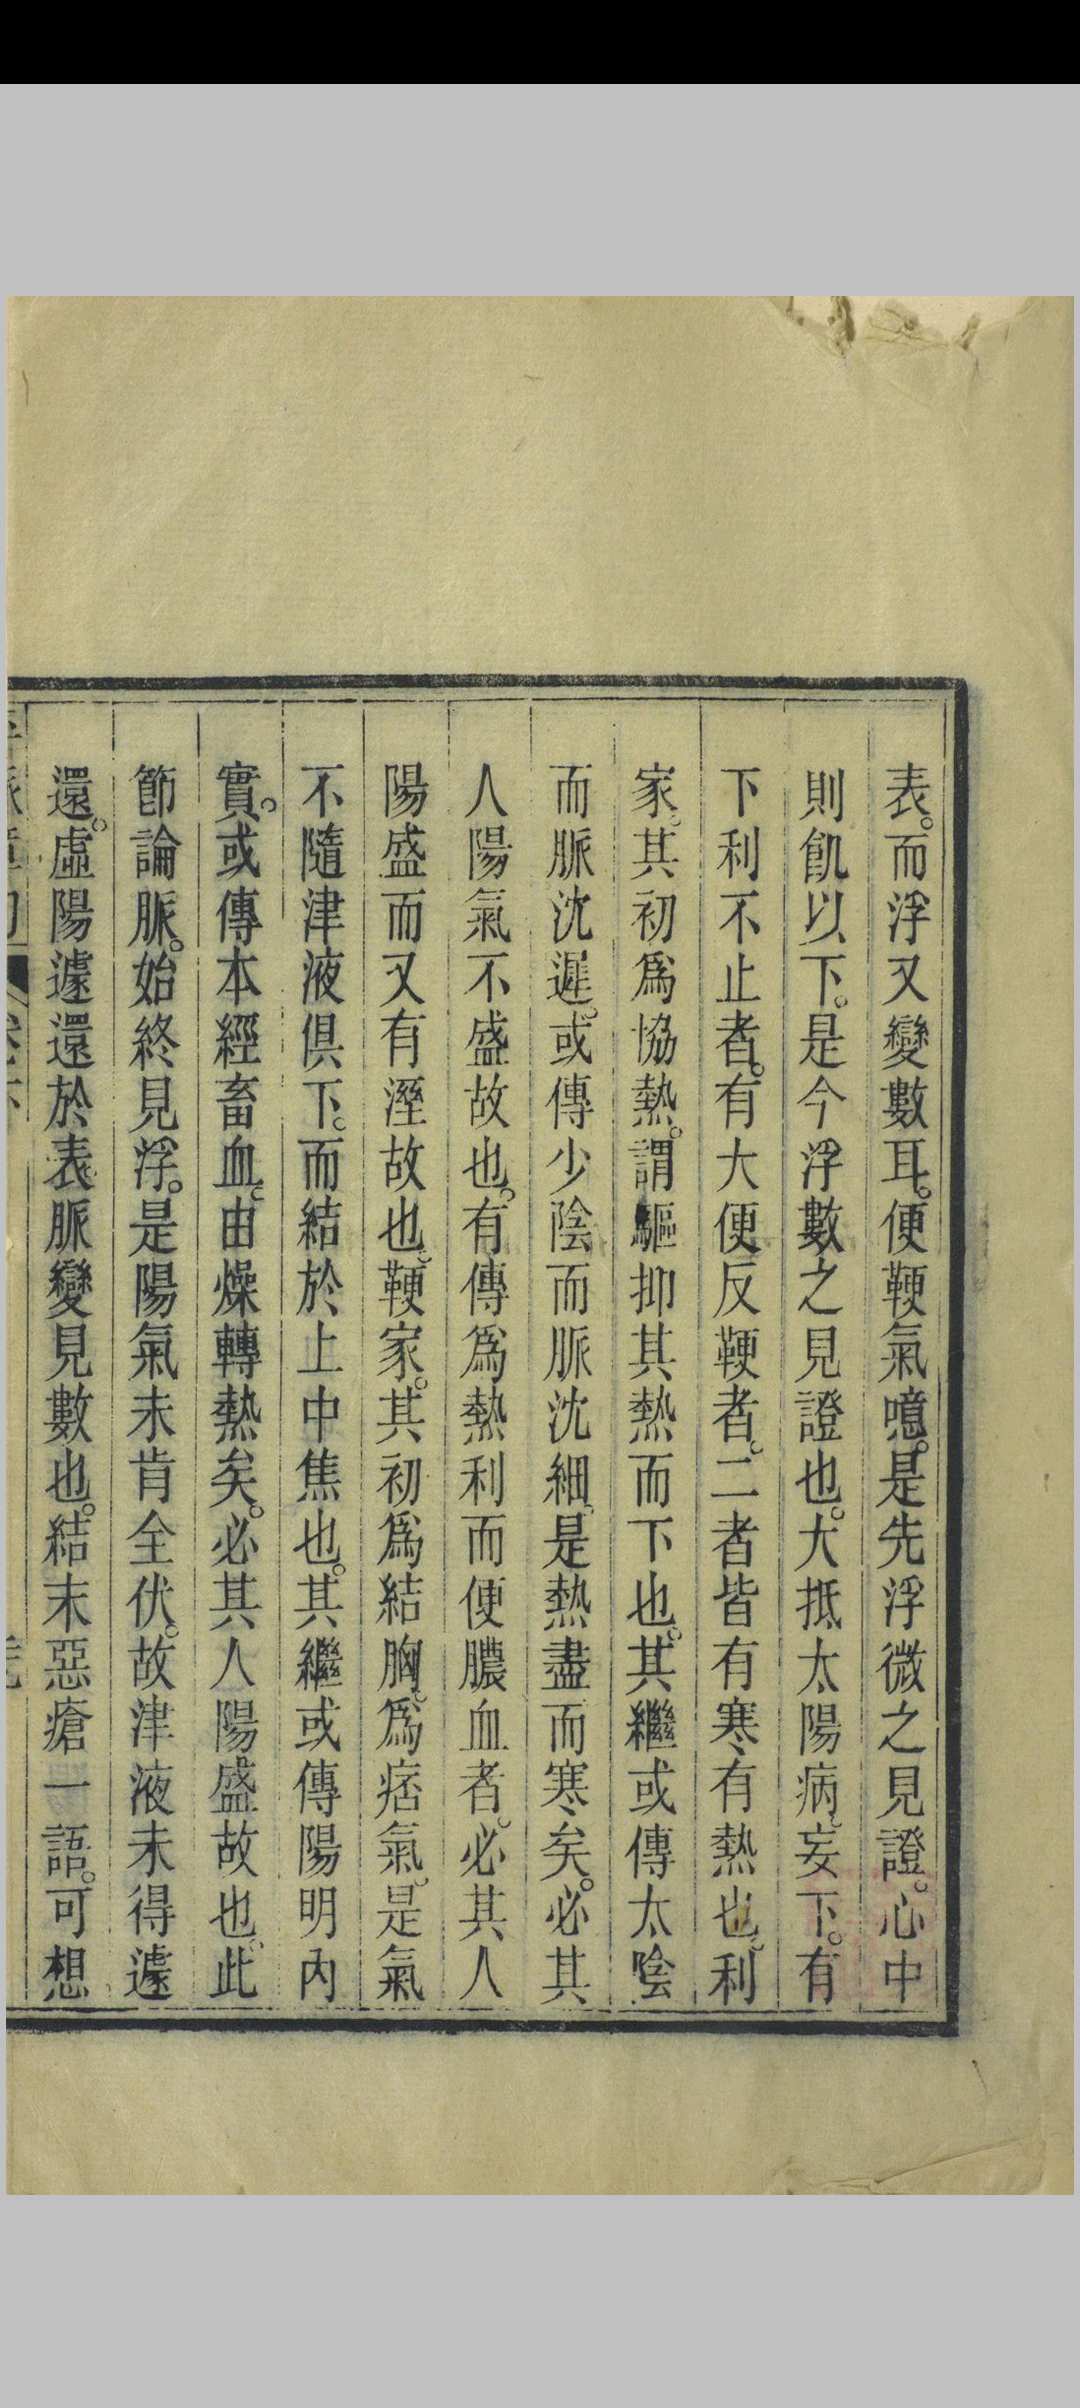 表。而浮又變數耳。便鞕氣噫。是先浮微之見證。心中
則飢以下。是今浮數之見證也。大抵太陽病。妄下。有
下利不止者。有大便反鞕者。二者皆有寒有熱也。利
家。其初爲協熱。謂驅抑其熱而下也。其繼或傳太陰
而脈沈遲。或傳少陰而脈沈細。是熱盡而寒矣。必其
人陽氣不盛故也。有傳爲熱利而便膿血者。必其人
陽盛而又有溼故也。鞕家。其初爲結胸。爲痞氣。是氣
不隨津液俱下。而結於上中焦也。其繼或傳陽明內
實。或傳本經畜血。由燥轉熱矣。必其人陽盛故也。此
節論脈。始終見浮。是陽氣未肯全伏。故津液未得遽
還。虛陽遽還於表。脈變見數也。結末惡瘡一語。可想